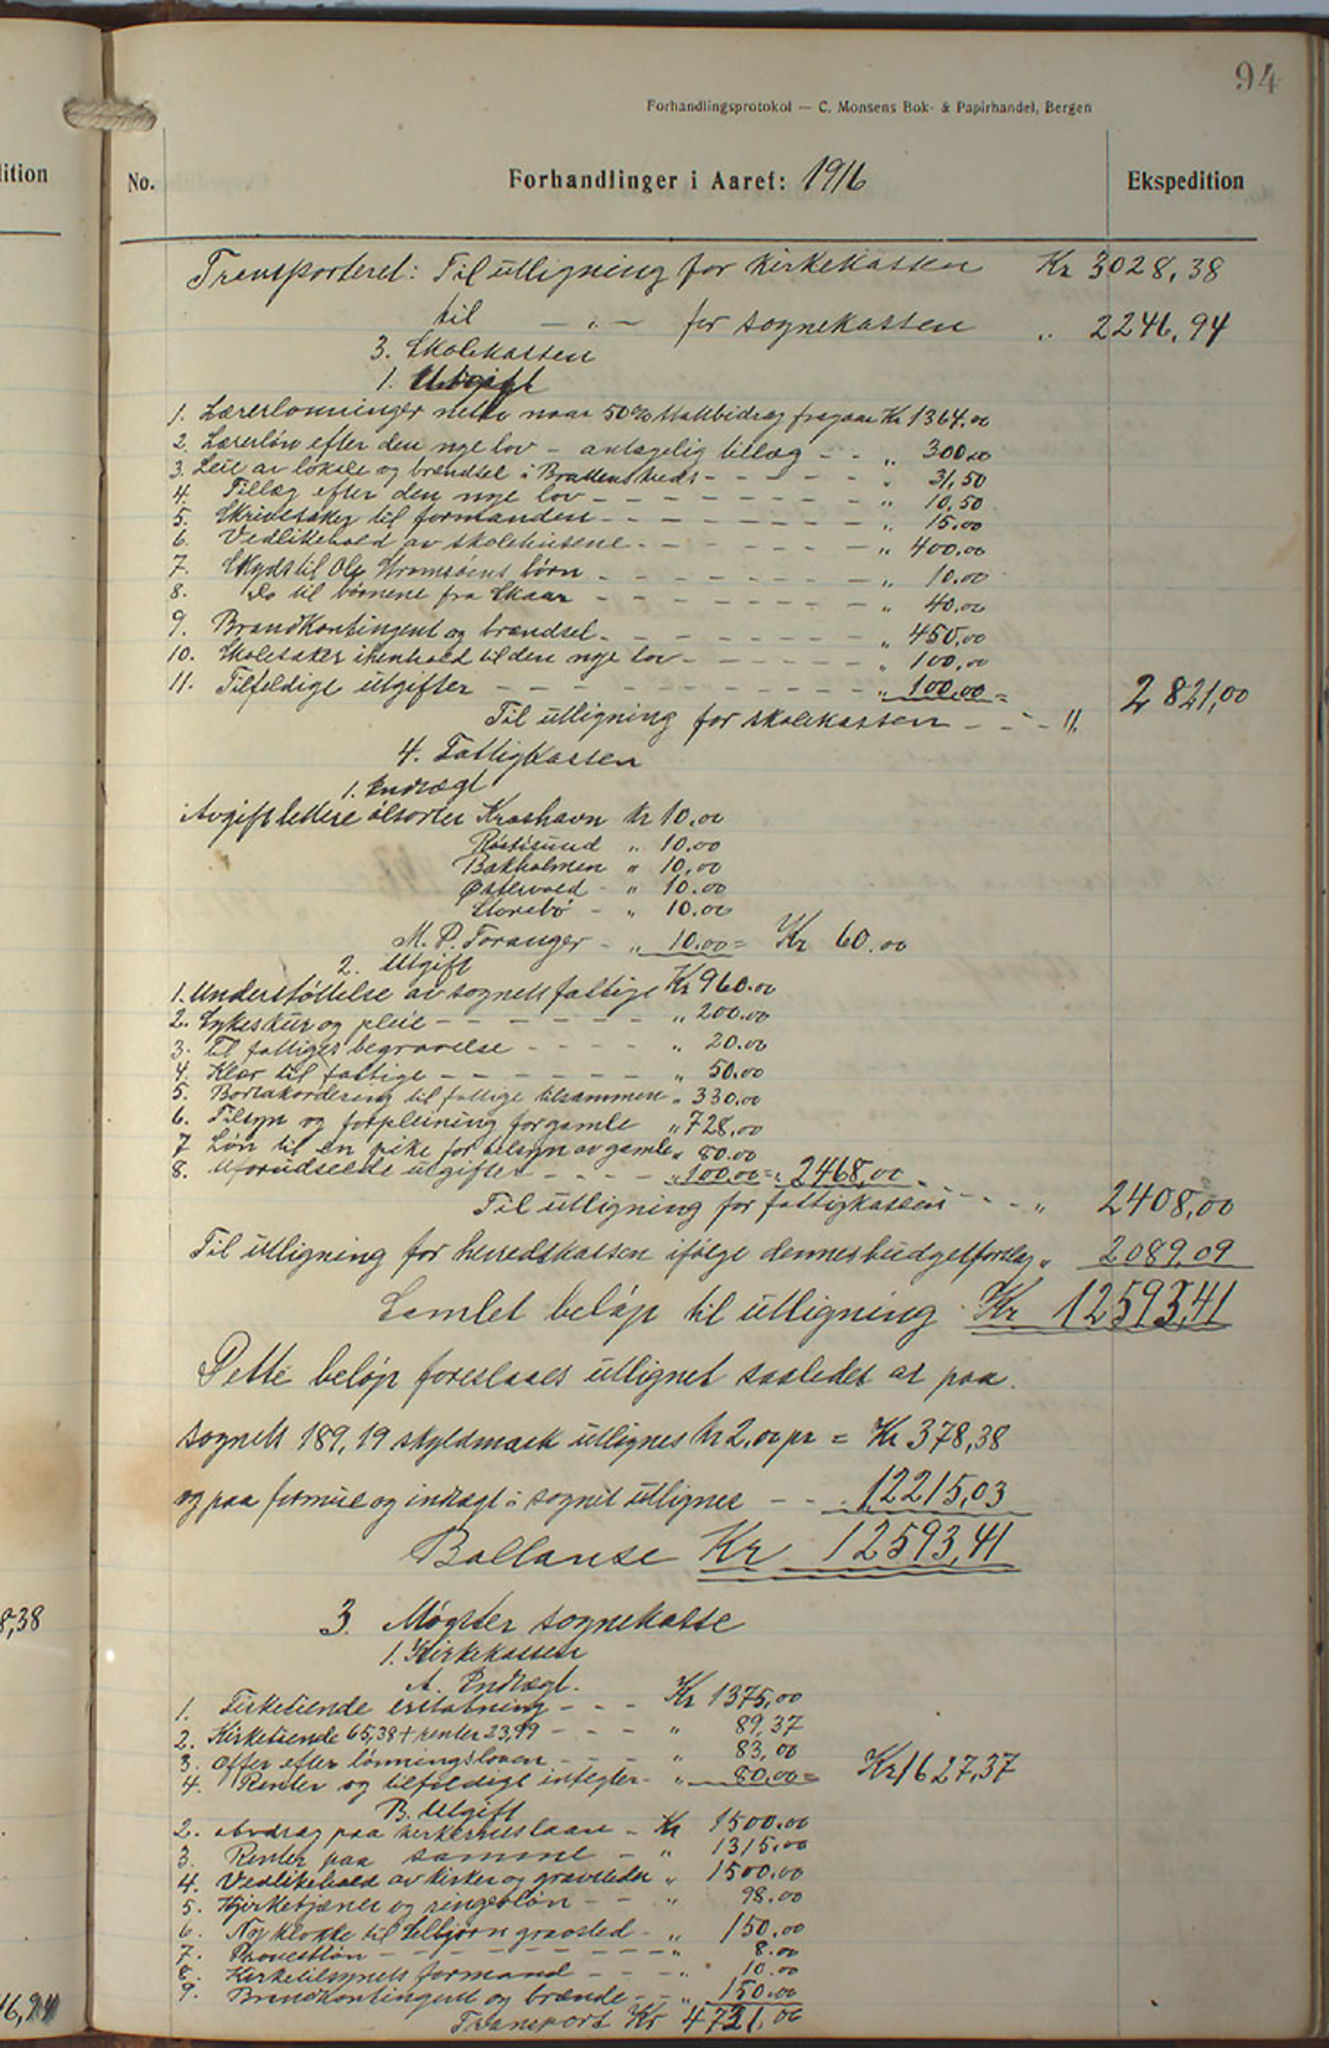 94
Forhandlingsprotokol — C. Monsens Bok- & Papirhandel, Bergen
ition
No.
Forhandlinger i Aaret: 1916
Ekspedition
Transporteret: Til utligning for Kirkekassen Kr 3028,38
til — „ — for sognekassen „ 2246,94
3. Skolekassen
1. Utgift
1. Lærerlønninger netto naar 50% statsbidrag fragaar Kr 1364.00
2. Lærerløn efter den nye lov - antagelig tillæg - - „ 300.00
3. Leie av lokale og brændsel i Brattenskreds - - - - - „ 31,50
4. Tillæg efter den nye lov - - - - - - - - „ 10,50
5. Skrivesaker til formanden - - - - - - - - „ 15.00
6. Vedlikehold av skolehusene - - - - - - - - „ 400.00
7. Skyds til Ole Stromsøens børn - - - - - - - „ 10.00
8. Do til børnene fra Skaar - - - - - - - „ 40.00
9. Brandkontingent og brændsel - - - - - - - „ 450,00
10. Skolesaker i henhold til den nye lov - - - - - - „ 100,00
11. Tilfeldige utgifter - - - - - - - - - - „ 100,00 =
Til utligning for skolekassen - - - „ 2821,00
4. Fattigkassen
1. Indtægt
Avgift lettere ølsorter Kroshavn Kr 10.00
Røstisund „ 10.00
Bakholmen „ 10,00
Østervold - „ 10.00
Storebø - „ 10.00
M. P. Foranger - „ 10.00 = Kr 60.00
2. Utgift
1. Understøttelse av sognets fattige Kr 960.00
2. Sykeskur og pleie - - - - - - „ 200.00
3. Til fattiges begravelse - - - - „ 20.00
4. Klær til fattige - - - - - - „ 50.00
5. Bortakordering til fattige tilsammen „ 330.00
6. Tilsyn og forpleining for gamle „ 728,00
7 Løn til en pike for tilsyn av gamle „ 80.00
8. Uforudseede utgifter - - - - „ 100,00 = „ 2468,00
Til utligning for fattigkassen - - - „ 2408,00
Til utligning for herredskassen ifølge dennes budgetforslag „ 2089,09
Samlet beløp til utligning Kr 12593,41
Dette beløp foreslaaes utlignet saaledes at paa
sognets 189,19 skyldmark utlignes kr 2,00 pr = Kr 378,38
og paa formue og indtægt i sognet utlignes - - „ 12215,03
Ballanse Kr 12593,41
8,38
3. Møgster sognekasse
1. Kirkekassen
A. Indtægt.
1. Fisketiende erstatning - - - Kr 1375,00
2. Kirketiende 65,38 + renter 23,99 - - - „ 89,37
3. Offer efter lønningsloven - - - - „ 83,00
4. Renter og tilfeldige integter - „ 80,00 = Kr 1627,37
B. Utgift
2. Avdrag paa kirkehuslaan - Kr 1500.00
3. Renter paa samme - „ 1315,00
4. Vedlikehold av kirker og gravsteder „ 1500.00
5. Kjirketjener og ringerløn - - „ 98.00
6. Ny klokke til Selbjørn gravsted - „ 150.00
7. Provestløn - - - - - - - - - „ 8.00
8. Kirketilsynets formand - - - „ 10.00
9. Brandkontingent og brænde - - „ 150.00
16,94
Transport Kr 4731.00